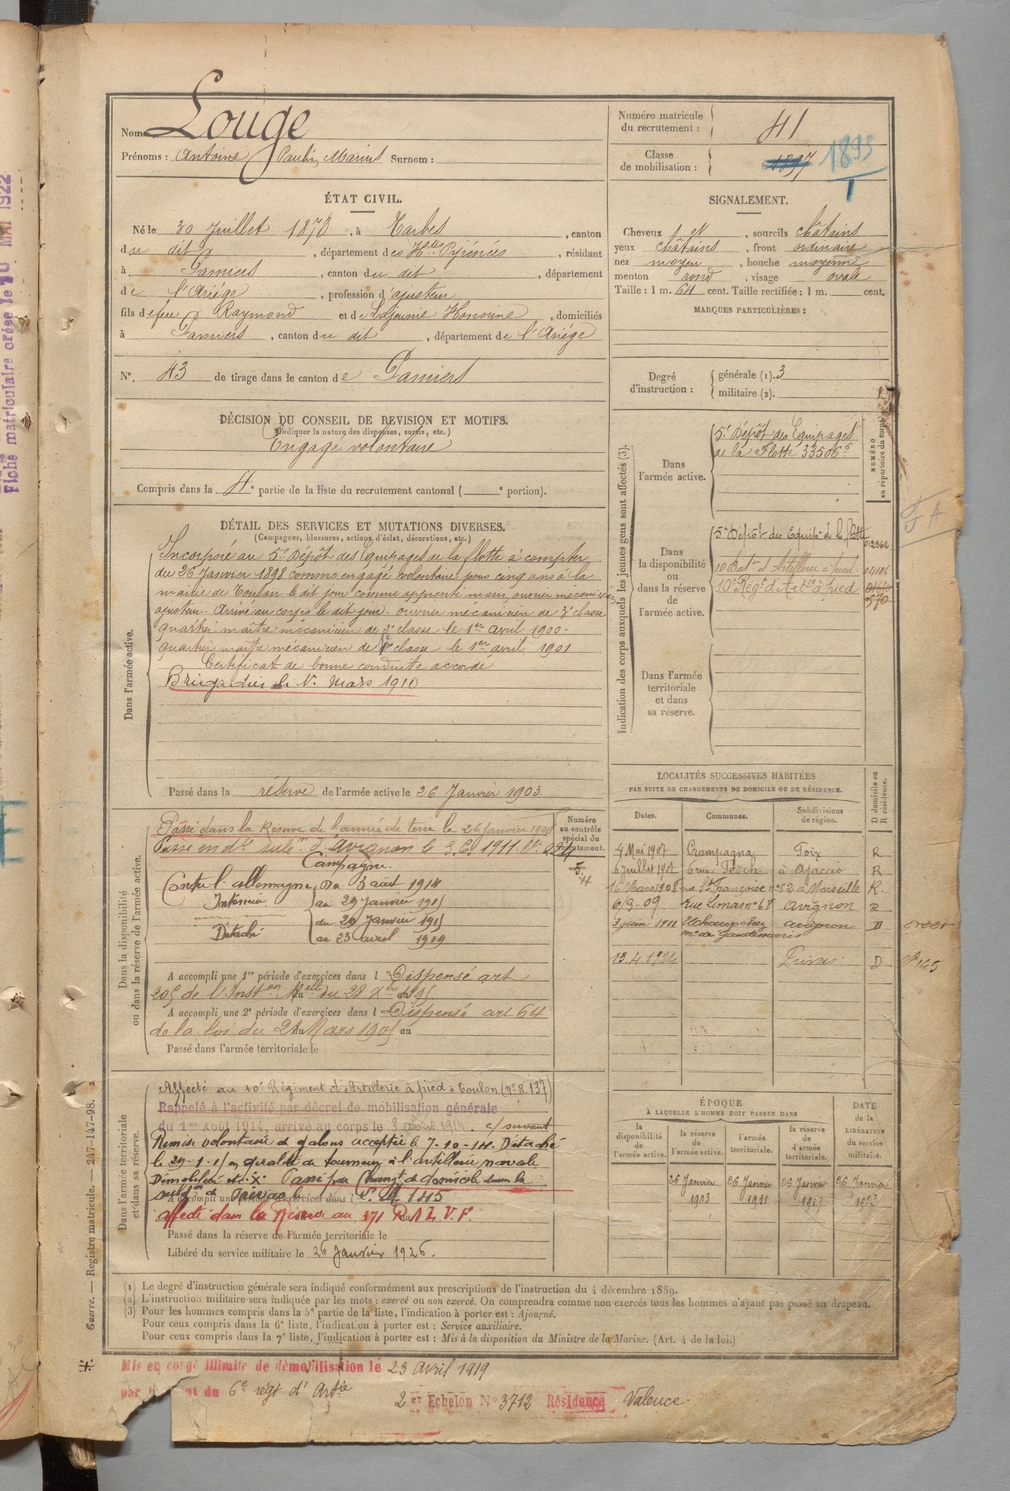 Nom Louge
Prénoms : Antoine Paulin Marius Surnom :
Numéro matricule du recrutement : 41
Classe de mobilisation : 1897 1893
ÉTAT CIVIL.
Né le 30 Juillet 1878, à Tarbes, canton
du dit, département des Htes Pyrénées, résidant
à Pamiers, canton du dit, département
de l'Ariége, profession d'ajusteur
fils de feu Raymond et de Lajaunie Honorine, domiciliés
à Pamiers, canton du dit, département de l'Ariége
N° 43 de tirage dans le canton de Pamiers
SIGNALEMENT.
Cheveux et, sourcils châtains
yeux châtains, front ordinaire
nez moyen, bouche moyenne
menton rond, visage ovale
Taille : 1 m. 64 cent. Taille rectifiée : 1 m. cent.
MARQUES PARTICULIÈRES :
Degré d'instruction : générale (1). 3
militaire (2).
DÉCISION DU CONSEIL DE REVISION ET MOTIFS.
(Indiquer la nature des dispenses, sursis, etc.)
Engagé volontaire
Compris dans la 4e partie de la liste du recrutement cantonal ( e portion).
DÉTAIL DES SERVICES ET MUTATIONS DIVERSES.
(Campagnes, blessures, actions d'éclat, décorations, etc.)
Dans l'armée active.
Incorporé au 5e Dépôt des Equipages de la flotte à compter
du 26 Janvier 1898 comme engagé volontaire pour cinq ans à la
mairie de Toulon le dit jour comme apprenti marin ouvrier mécanicien
ajusteur. Arrivé au corps le dit jour. ouvrier mécanicien de 3e classe
quartier maître mécanicien de 2e classe le 1er avril 1900.
quartier maître mécanicien de classe le 1er avril 1901
Certificat de bonne conduite accordé
Brigadier le Mars 1910
Passé dans la réserve de l'armée active le 26 Janvier 1903.
Indication des corps auxquels les jeunes gens sont affectés (3).
NUMÉRO au répertoire du corps
Dans l'armée active.
5e Dépôt des Equipages
de la Flotte 33506
Dans la disponibilité ou dans la réserve de l'armée active.
5e Dépôt des Equip. de la Flotte
10 Baton d'Artillerie à pied
10e Régt d'Artie à pied
570
Dans l'armée territoriale et dans sa réserve.
LOCALITÉS SUCCESSIVES HABITÉES
PAR SUITE DE CHANGEMENTS DE DOMICILE OU DE RÉSIDENCE.
Dates. Communes. Subdivisions de région. D domicile ou R résidence.
4 Mai 1907 Crampagna Foix R
6 Juillet 1907 6 rue Fesch à Ajaccio R
16 Mars 1908 rue St Françoise n° 52 à Marseille R.
6-9-09 Rue Limas n° 68 avignon R
3 juin 1911 avignon D
13.4.1924 Privas D
Dans la disponibilité ou dans la réserve de l'armée active.
Numéro au contrôle spécial du recrutement.
Passé dans la Réserve de l'armée de terre le 26 janvier 1903
Passé en de avignon le 1911
Campagne.
Contre l'allemagne Du 3 août 1914
Intérieur au 29 janvier 1915
Détaché du 29 janvier 1915
au 23 avril 1919
A accompli une 1re période d'exercices dans l Dispensé art.
205 de l'Inston du 28
A accompli une 2e période d'exercices dans l Dispensé art 64
de la loi du 21 Mars 1905 au
Passé dans l'armée territoriale le
Dans l'armée territoriale et dans sa réserve.
Affecté au 10e Régiment d'Artillerie à pied à Toulon (N° R. 137)
Rappelé à l'activité par décret de mobilisation générale
du 1er Août 1914, arrivé au corps le 3 août 1914. c/ suivant
Remise volontaire de galons acceptée le 7-10-14. Détaché
le 29-1-15 à l'artillerie navale
Démobilisé Passé par Changt de domicile dans la
subdon de Privas N° 145
A accompli une période d'exercices dans l
affecté dans la Réserve au 371 R.A.L.V.F.
Passé dans la réserve de l'armée territoriale le
Libéré du service militaire le 26 Janvier 1926.
ÉPOQUE
À LAQUELLE L'HOMME DOIT PASSER DANS
la disponibilité de l'armée active. la réserve de l'armée active. l'armée territoriale. la réserve de l'armée territoriale. DATE DE LA LIBÉRATION du service militaire.
26 Janvier 1903 26 Janvier 1911 26 Janvier 1917 26 Janvier 1923
(1) Le degré d'instruction générale sera indiqué conformément aux prescriptions de l'instruction du 4 décembre 1889.
(2) L'instruction militaire sera indiquée par les mots : exercé ou non exercé. On comprendra comme non exercés tous les hommes n'ayant pas passé au drapeau.
(3) Pour les hommes compris dans la 5e partie de la liste, l'indication à porter est : Ajourné.
Pour ceux compris dans la 6e liste, l'indication à porter est : Service auxiliaire.
Pour ceux compris dans la 7e liste, l'indication à porter est : Mis à la disposition du Ministre de la Marine. (Art. 4 de la loi.)
Mis en congé illimité de démobilisation le 23 avril 1919
par du 6e régt d'Artie
2er Echelon N° 3712 Résidence Valence
Guerre. — Registre matricule. — 247-147-98.
Fiche matriculaire créée le MAI 1922